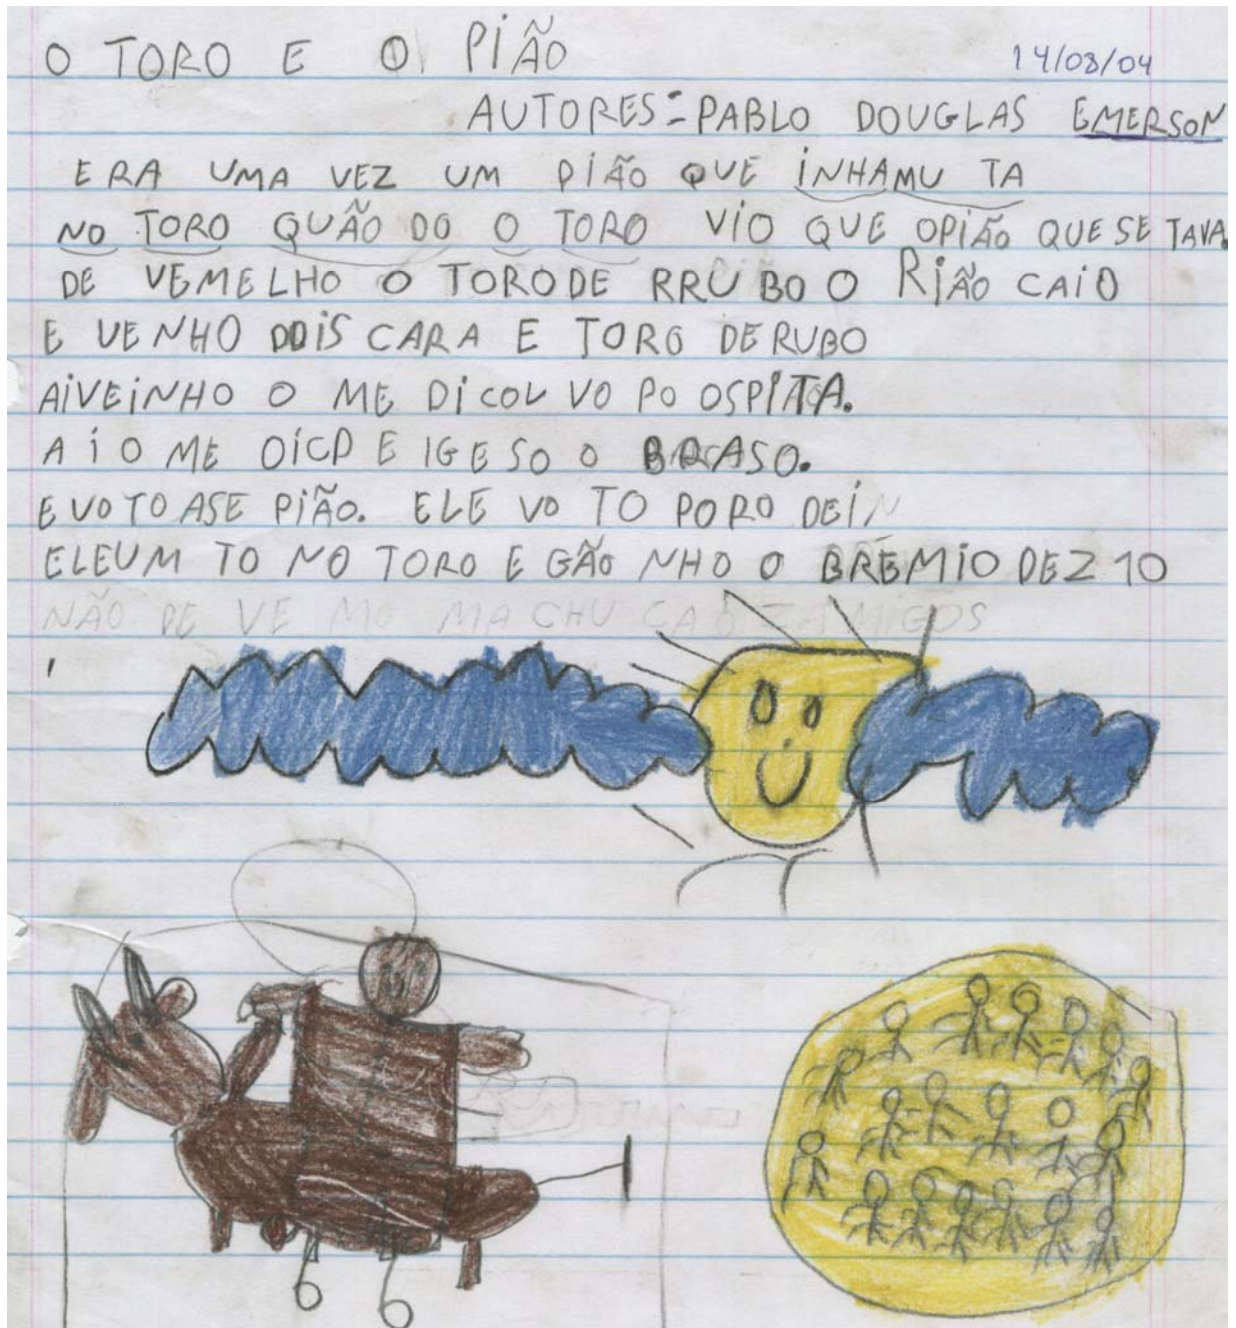 O TORO E O PIÃO
14/08/04
AUTORES: PABLO DOUGLAS EMERSON
ERA UMA VEZ UM PIÃO QUE INHAMU TA
NO TORO QUÃO DO O TORO VIO QUE OPIÃO QUE SE TAVA
DE VEMELHO O TORO DE RRU BO O PIÃO CAIO
E VENHO DOIS CARA E TORO DERUBO
AIVEINHO O ME DICOL VO PO OSPITA.
AI O ME DICO E IGESO O BRASO.
E VOTO ASE PIÃO. ELE VO TO PORO DEIN
ELEUM TO NO TORO E GÃO NHO O BREMIO DEZ 10
NÃO DE VE MO MACHUCA OZAMIGOS